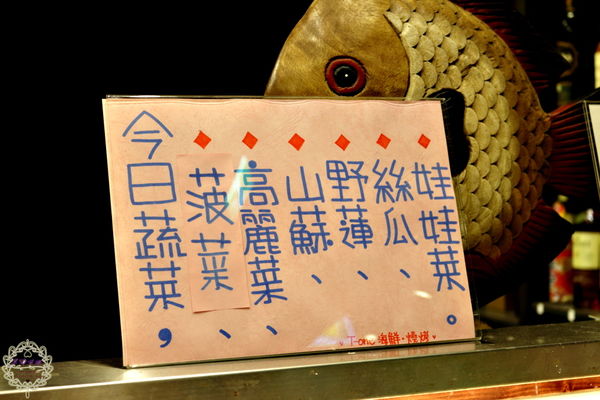 今日蔬菜,
菠菜、
高麗菜、
山蘇、
野蓮、
絲瓜、
娃娃菜。
T-one 海鮮·燒烤